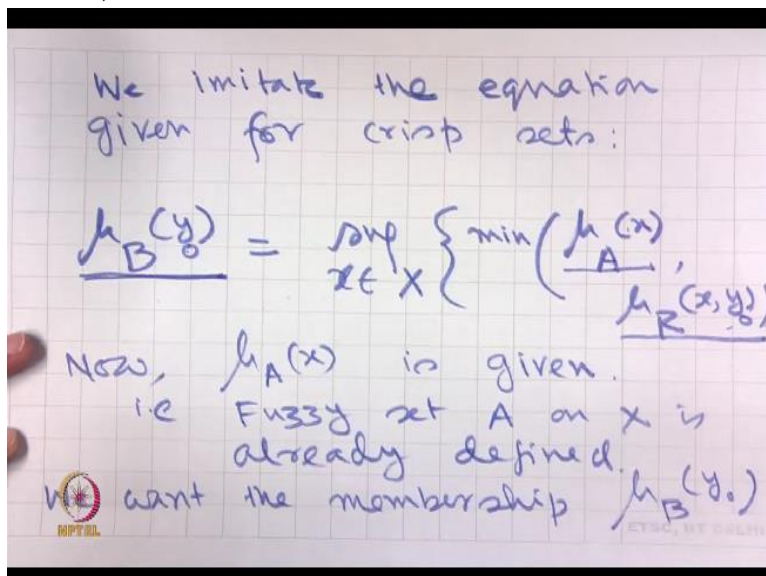 We imitate the equation
given for crisp sets:
μ_B(y₀) = sup_{x∈X} { min ( μ_A(x),
μ_R(x,y₀)
Now, μ_A(x) is given.
i.e Fuzzy set A on X is
already defined.
We want the membership μ_B(y₀)
NPTEL
ETSC, IIT DELHI